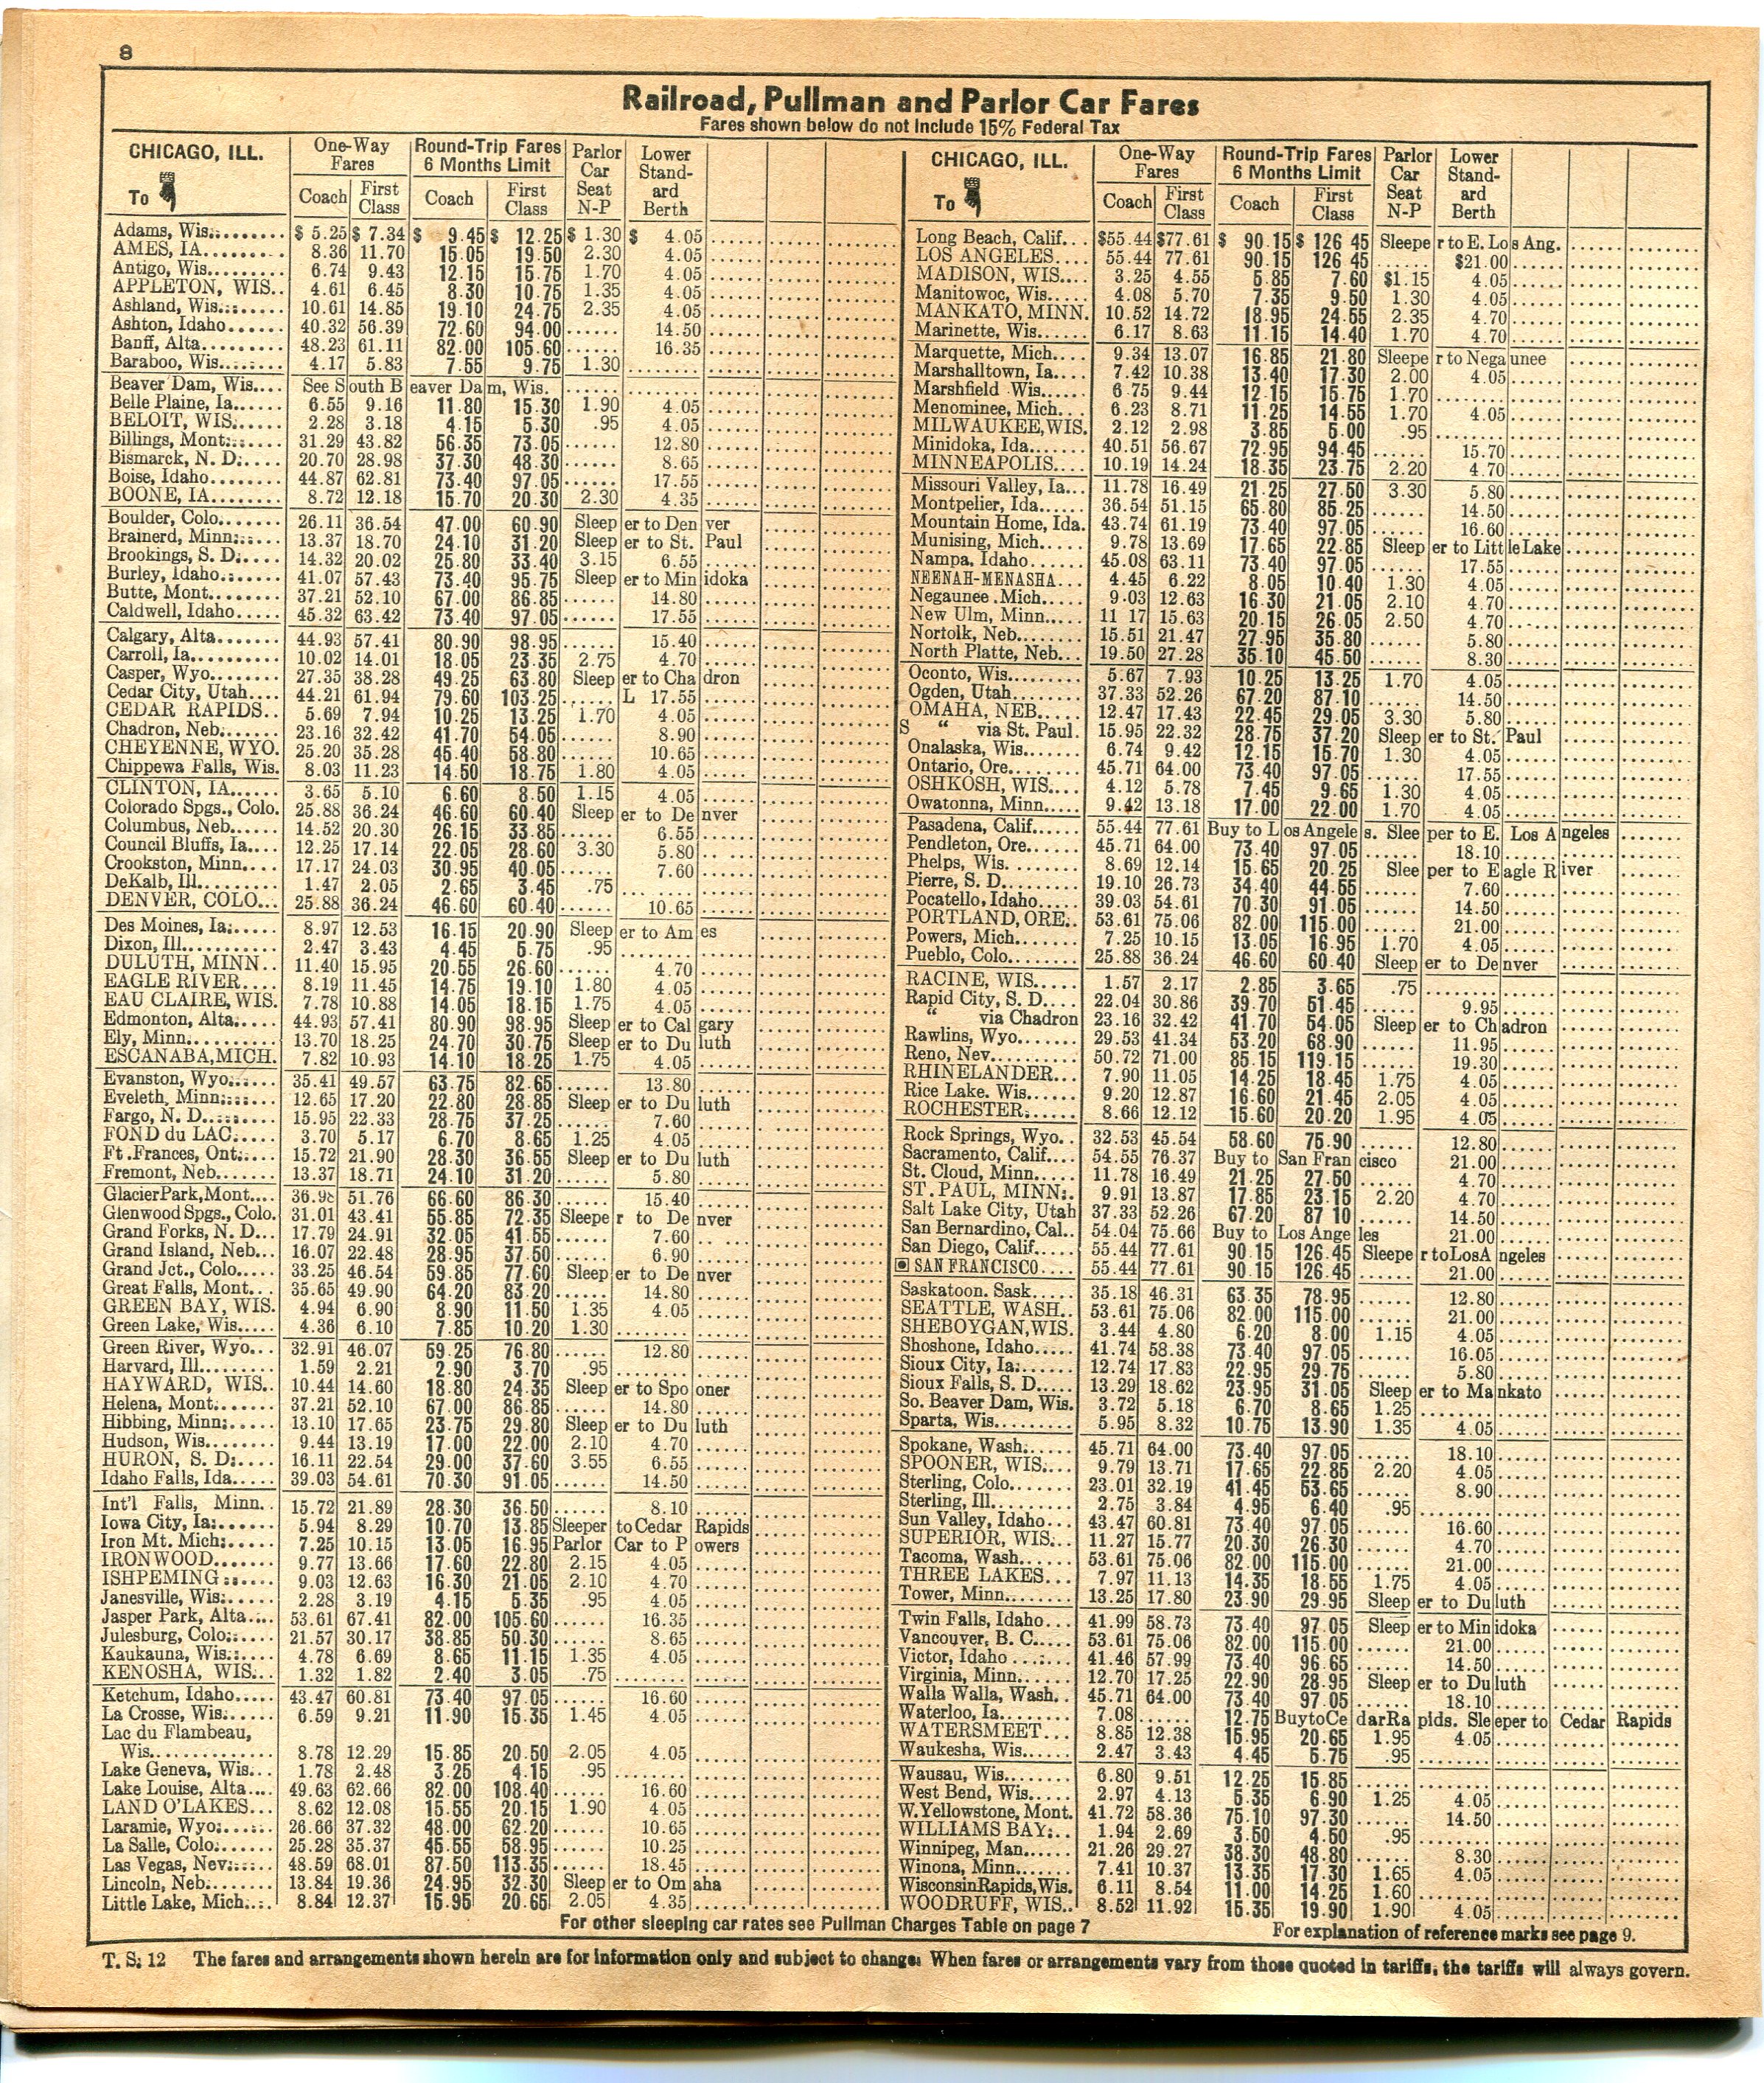 8
Railroad, Pullman and Parlor Car Fares
Fares shown below do not include 15% Federal Tax
CHICAGO, ILL. To
One-Way Fares
Round-Trip Fares 6 Months Limit
Parlor Car Seat N-P
Lower Standard Berth
Coach First Class Coach First Class
Adams, Wis. $ 5.25 $ 7.34 $ 9.45 $ 12.25 $ 1.30 $ 4.05
AMES, IA. 8.36 11.70 15.05 19.50 2.30 4.05
Antigo, Wis. 6.74 9.43 12.15 15.75 1.70 4.05
APPLETON, WIS. 4.61 6.45 8.30 10.75 1.35 4.05
Ashland, Wis. 10.61 14.85 19.10 24.75 2.35 4.05
Ashton, Idaho 40.32 56.39 72.60 94.00 14.50
Banff, Alta. 48.23 61.11 82.00 105.60 16.35
Baraboo, Wis. 4.17 5.83 7.55 9.75 1.30
Beaver Dam, Wis. See South Beaver Dam, Wis.
Belle Plaine, Ia. 6.55 9.16 11.80 15.30 1.90 4.05
BELOIT, WIS. 2.28 3.18 4.15 5.30 .95 4.05
Billings, Mont. 31.29 43.82 56.35 73.05 12.80
Bismarck, N. D. 20.70 28.98 37.30 48.30 8.65
Boise, Idaho 44.87 62.81 73.40 97.05 17.55
BOONE, IA. 8.72 12.18 15.70 20.30 2.30 4.35
Boulder, Colo. 26.11 36.54 47.00 60.90 Sleeper to Denver
Brainerd, Minn. 13.37 18.70 24.10 31.20 Sleeper to St. Paul
Brookings, S. D. 14.32 20.02 25.80 33.40 3.15 6.55
Burley, Idaho 41.07 57.43 73.40 95.75 Sleeper to Minidoka
Butte, Mont. 37.21 52.10 67.00 86.85 14.80
Caldwell, Idaho 45.32 63.42 73.40 97.05 17.55
Calgary, Alta. 44.93 57.41 80.90 98.95 15.40
Carroll, Ia. 10.02 14.01 18.05 23.35 2.75 4.70
Casper, Wyo. 27.35 38.28 49.25 63.80 Sleeper to Chadron
Cedar City, Utah 44.21 61.94 79.60 103.25 L 17.55
CEDAR RAPIDS 5.69 7.94 10.25 13.25 1.70 4.05
Chadron, Neb. 23.16 32.42 41.70 54.05 8.90
CHEYENNE, WYO. 25.20 35.28 45.40 58.80 10.65
Chippewa Falls, Wis. 8.03 11.23 14.50 18.75 1.80 4.05
CLINTON, IA. 3.65 5.10 6.60 8.50 1.15 4.05
Colorado Spgs., Colo. 25.88 36.24 46.60 60.40 Sleeper to Denver
Columbus, Neb. 14.52 20.30 26.15 33.85 6.55
Council Bluffs, Ia. 12.25 17.14 22.05 28.60 3.30 5.80
Crookston, Minn. 17.17 24.03 30.95 40.05 7.60
DeKalb, Ill. 1.47 2.05 2.65 3.45 .75
DENVER, COLO. 25.88 36.24 46.60 60.40 10.65
Des Moines, Ia. 8.97 12.53 16.15 20.90 Sleeper to Ames
Dixon, Ill. 2.47 3.43 4.45 5.75 .95
DULUTH, MINN. 11.40 15.95 20.55 26.60 4.70
EAGLE RIVER 8.19 11.45 14.75 19.10 1.80 4.05
EAU CLAIRE, WIS. 7.78 10.88 14.05 18.15 1.75 4.05
Edmonton, Alta. 44.93 57.41 80.90 98.95 Sleeper to Calgary
Ely, Minn. 13.70 18.25 24.70 30.75 Sleeper to Duluth
ESCANABA, MICH. 7.82 10.93 14.10 18.25 1.75 4.05
Evanston, Wyo. 35.41 49.57 63.75 82.65 13.80
Eveleth, Minn. 12.65 17.20 22.80 28.85 Sleeper to Duluth
Fargo, N. D. 15.95 22.33 28.75 37.25 7.60
FOND du LAC 3.70 5.17 6.70 8.65 1.25 4.05
Ft. Frances, Ont. 15.72 21.90 28.30 36.55 Sleeper to Duluth
Fremont, Neb. 13.37 18.71 24.10 31.20 5.80
Glacier Park, Mont. 36.98 51.76 66.60 86.30 15.40
Glenwood Spgs., Colo. 31.01 43.41 55.85 72.35 Sleeper to Denver
Grand Forks, N. D. 17.79 24.91 32.05 41.55 7.60
Grand Island, Neb. 16.07 22.48 28.95 37.50 6.90
Grand Jct., Colo. 33.25 46.54 59.85 77.60 Sleeper to Denver
Great Falls, Mont. 35.65 49.90 64.20 83.20 14.80
GREEN BAY, WIS. 4.94 6.90 8.90 11.50 1.35 4.05
Green Lake, Wis. 4.36 6.10 7.85 10.20 1.30
Green River, Wyo. 32.91 46.07 59.25 76.80 12.80
Harvard, Ill. 1.59 2.21 2.90 3.70 .95
HAYWARD, WIS. 10.44 14.60 18.80 24.35 Sleeper to Spooner
Helena, Mont. 37.21 52.10 67.00 86.85 14.80
Hibbing, Minn. 13.10 17.65 23.75 29.80 Sleeper to Duluth
Hudson, Wis. 9.44 13.19 17.00 22.00 2.10 4.70
HURON, S. D. 16.11 22.54 29.00 37.60 3.55 6.55
Idaho Falls, Ida. 39.03 54.61 70.30 91.05 14.50
Int'l Falls, Minn. 15.72 21.89 28.30 36.50 8.10
Iowa City, Ia. 5.94 8.29 10.70 13.85 Sleeper to Cedar Rapids
Iron Mt. Mich. 7.25 10.15 13.05 16.95 Parlor Car to Powers
IRONWOOD 9.77 13.66 17.60 22.80 2.15 4.05
ISHPEMING 9.03 12.63 16.30 21.05 2.10 4.70
Janesville, Wis. 2.28 3.19 4.15 5.35 .95 4.05
Jasper Park, Alta. 53.61 67.41 82.00 105.60 16.35
Julesburg, Colo. 21.57 30.17 38.85 50.30 8.65
Kaukauna, Wis. 4.78 6.69 8.65 11.15 1.35 4.05
KENOSHA, WIS. 1.32 1.82 2.40 3.05 .75
Ketchum, Idaho 43.47 60.81 73.40 97.05 16.60
La Crosse, Wis. 6.59 9.21 11.90 15.35 1.45 4.05
Lac du Flambeau,
Wis. 8.78 12.29 15.85 20.50 2.05 4.05
Lake Geneva, Wis. 1.78 2.48 3.25 4.15 .95
Lake Louise, Alta. 49.63 62.66 82.00 108.40 16.60
LAND O'LAKES 8.62 12.08 15.55 20.15 1.90 4.05
Laramie, Wyo. 26.66 37.32 48.00 62.20 10.65
La Salle, Colo. 25.28 35.37 45.55 58.95 10.25
Las Vegas, Nev. 48.59 68.01 87.50 113.35 18.45
Lincoln, Neb. 13.84 19.36 24.95 32.30 Sleeper to Omaha
Little Lake, Mich. 8.84 12.37 15.95 20.65 2.05 4.35
CHICAGO, ILL. To
One-Way Fares
Round-Trip Fares 6 Months Limit
Parlor Car Seat N-P
Lower Standard Berth
Coach First Class Coach First Class
Long Beach, Calif. $55.44 $77.61 $ 90.15 $ 126 45 Sleeper to E. Los Ang.
LOS ANGELES 55.44 77.61 90.15 126 45 $21.00
MADISON, WIS. 3.25 4.55 5.85 7.60 $1.15 4.05
Manitowoc, Wis. 4.08 5.70 7.35 9.50 1.30 4.05
MANKATO, MINN. 10.52 14.72 18.95 24.55 2.35 4.70
Marinette, Wis. 6.17 8.63 11.15 14.40 1.70 4.70
Marquette, Mich. 9.34 13.07 16.85 21.80 Sleeper to Negaunee
Marshalltown, Ia. 7.42 10.38 13.40 17.30 2.00 4.05
Marshfield Wis. 6 75 9.44 12.15 15.75 1.70
Menominee, Mich. 6.23 8.71 11.25 14.55 1.70 4.05
MILWAUKEE, WIS. 2.12 2.98 3.85 5.00 .95
Minidoka, Ida. 40.51 56.67 72.95 94.45 15.70
MINNEAPOLIS 10.19 14.24 18.35 23.75 2.20 4.70
Missouri Valley, Ia. 11.78 16.49 21.25 27.50 3.30 5.80
Montpelier, Ida. 36.54 51.15 65.80 85.25 14.50
Mountain Home, Ida. 43.74 61.19 73.40 97.05 16.60
Munising, Mich. 9.78 13.69 17.65 22.85 Sleeper to Little Lake
Nampa, Idaho 45.08 63.11 73.40 97.05 17.55
NEENAH-MENASHA 4.45 6.22 8.05 10.40 1.30 4.05
Negaunee Mich. 9.03 12.63 16.30 21.05 2.10 4.70
New Ulm, Minn. 11 17 15.63 20.15 26.05 2.50 4.70
Norfolk, Neb. 15.51 21.47 27.95 35.80 5.80
North Platte, Neb. 19.50 27.28 35.10 45.50 8.30
Oconto, Wis. 5.67 7.93 10.25 13.25 1.70 4.05
Ogden, Utah 37.33 52.26 67.20 87.10 14.50
OMAHA, NEB. 12.47 17.43 22.45 29.05 3.30 5.80
S " via St. Paul. 15.95 22.32 28.75 37.20 Sleeper to St. Paul
Onalaska, Wis. 6.74 9.42 12.15 15.70 1.30 4.05
Ontario, Ore. 45.71 64.00 73.40 97.05 17.55
OSHKOSH, WIS. 4.12 5.78 7.45 9.65 1.30 4.05
Owatonna, Minn. 9.42 13.18 17.00 22.00 1.70 4.05
Pasadena, Calif. 55.44 77.61 Buy to Los Angeles. Sleeper to E. Los Angeles
Pendleton, Ore. 45.71 64.00 73.40 97.05 18.10
Phelps, Wis. 8.69 12.14 15.65 20.25 Sleeper to Eagle River
Pierre, S. D. 19.10 26.73 34.40 44.55 7.60
Pocatello, Idaho 39.03 54.61 70.30 91.05 14.50
PORTLAND, ORE. 53.61 75.06 82.00 115.00 21.00
Powers, Mich. 7.25 10.15 13.05 16.95 1.70 4.05
Pueblo, Colo. 25.88 36.24 46.60 60.40 Sleeper to Denver
RACINE, WIS. 1.57 2.17 2.85 3.65 .75
Rapid City, S. D. 22.04 30.86 39.70 51.45 9.95
" via Chadron 23.16 32.42 41.70 54.05 Sleeper to Chadron
Rawlins, Wyo. 29.53 41.34 53.20 68.90 11.95
Reno, Nev. 50.72 71.00 85.15 119.15 19.30
RHINELANDER 7.90 11.05 14.25 18.45 1.75 4.05
Rice Lake. Wis. 9.20 12.87 16.60 21.45 2.05 4.05
ROCHESTER 8.66 12.12 15.60 20.20 1.95 4.05
Rock Springs, Wyo. 32.53 45.54 58.60 75.90 12.80
Sacramento, Calif. 54.55 76.37 Buy to San Francisco 21.00
St. Cloud, Minn. 11.78 16.49 21.25 27.50 4.70
ST. PAUL, MINN. 9.91 13.87 17.85 23.15 2.20 4.70
Salt Lake City, Utah 37.33 52.26 67.20 87 10 14.50
San Bernardino, Cal. 54.04 75.66 Buy to Los Angeles 21.00
San Diego, Calif. 55.44 77.61 90.15 126.45 Sleeper to Los Angeles
SAN FRANCISCO 55.44 77.61 90.15 126.45 21.00
Saskatoon. Sask. 35.18 46.31 63.35 78.95 12.80
SEATTLE, WASH. 53.61 75.06 82.00 115.00 21.00
SHEBOYGAN, WIS. 3.44 4.80 6.20 8.00 1.15 4.05
Shoshone, Idaho 41.74 58.38 73.40 97.05 16.05
Sioux City, Ia. 12.74 17.83 22.95 29.75 5.80
Sioux Falls, S. D. 13.29 18.62 23.95 31.05 Sleeper to Mankato
So. Beaver Dam, Wis. 3.72 5.18 6.70 8.65 1.25
Sparta, Wis. 5.95 8.32 10.75 13.90 1.35 4.05
Spokane, Wash. 45.71 64.00 73.40 97.05 18.10
SPOONER, WIS. 9.79 13.71 17.65 22.85 2.20 4.05
Sterling, Colo. 23.01 32.19 41.45 53.65 8.90
Sterling, Ill. 2.75 3.84 4.95 6.40 .95
Sun Valley, Idaho 43.47 60.81 73.40 97.05 16.60
SUPERIOR, WIS. 11.27 15.77 20.30 26.30 4.70
Tacoma, Wash. 53.61 75.06 82.00 115.00 21.00
THREE LAKES 7.97 11.13 14.35 18.55 1.75 4.05
Tower, Minn. 13.25 17.80 23.90 29.95 Sleeper to Duluth
Twin Falls, Idaho 41.99 58.73 73.40 97.05 Sleeper to Minidoka
Vancouver, B. C. 53.61 75.06 82.00 115.00 21.00
Victor, Idaho 41.46 57.99 73.40 96.65 14.50
Virginia, Minn. 12.70 17.25 22.90 28.95 Sleeper to Duluth
Walla Walla, Wash. 45.71 64.00 73.40 97.05 18.10
Waterloo, Ia. 7.08 12.75 Buy to Cedar Rapids. Sleeper to Cedar Rapids
WATERSMEET 8.85 12.38 15.95 20.65 1.95 4.05
Waukesha, Wis. 2.47 3.43 4.45 5.75 .95
Wausau, Wis. 6.80 9.51 12.25 15.85
West Bend, Wis. 2.97 4.13 5.35 6.90 1.25 4.05
W. Yellowstone, Mont. 41.72 58.36 75.10 97.30 14.50
WILLIAMS BAY 1.94 2.69 3.50 4.50 .95
Winnipeg, Man. 21.26 29.27 38.30 48.80 8.30
Winona, Minn. 7.41 10.37 13.35 17.30 1.65 4.05
Wisconsin Rapids, Wis. 6.11 8.54 11.00 14.25 1.60
WOODRUFF, WIS. 8.52 11.92 15.35 19.90 1.90 4.05
For other sleeping car rates see Pullman Charges Table on page 7
For explanation of reference marks see page 9.
T. S. 12 The fares and arrangements shown herein are for information only and subject to change. When fares or arrangements vary from those quoted in tariffs, the tariffs will always govern.